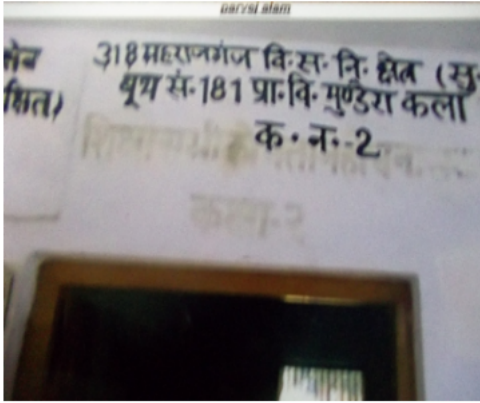 parvsl alam
318 महराजगंज वि॰स॰ नि॰ क्षेत्र (सु॰
क्षित)
बूथ सं॰ 181 प्रा॰वि॰ मुण्डेरा कला
क॰ न॰-2
कक्षा-2